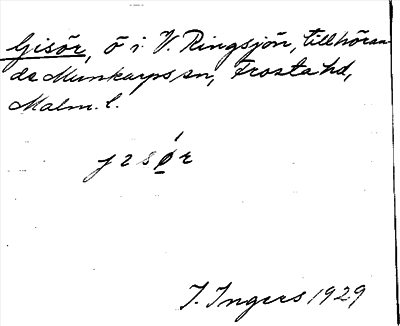 Gisör, ö i V. Ringsjön, tillhöran-
de Munkarps sn, Frosta hd,
Malm. l.
J. Ingers 1929